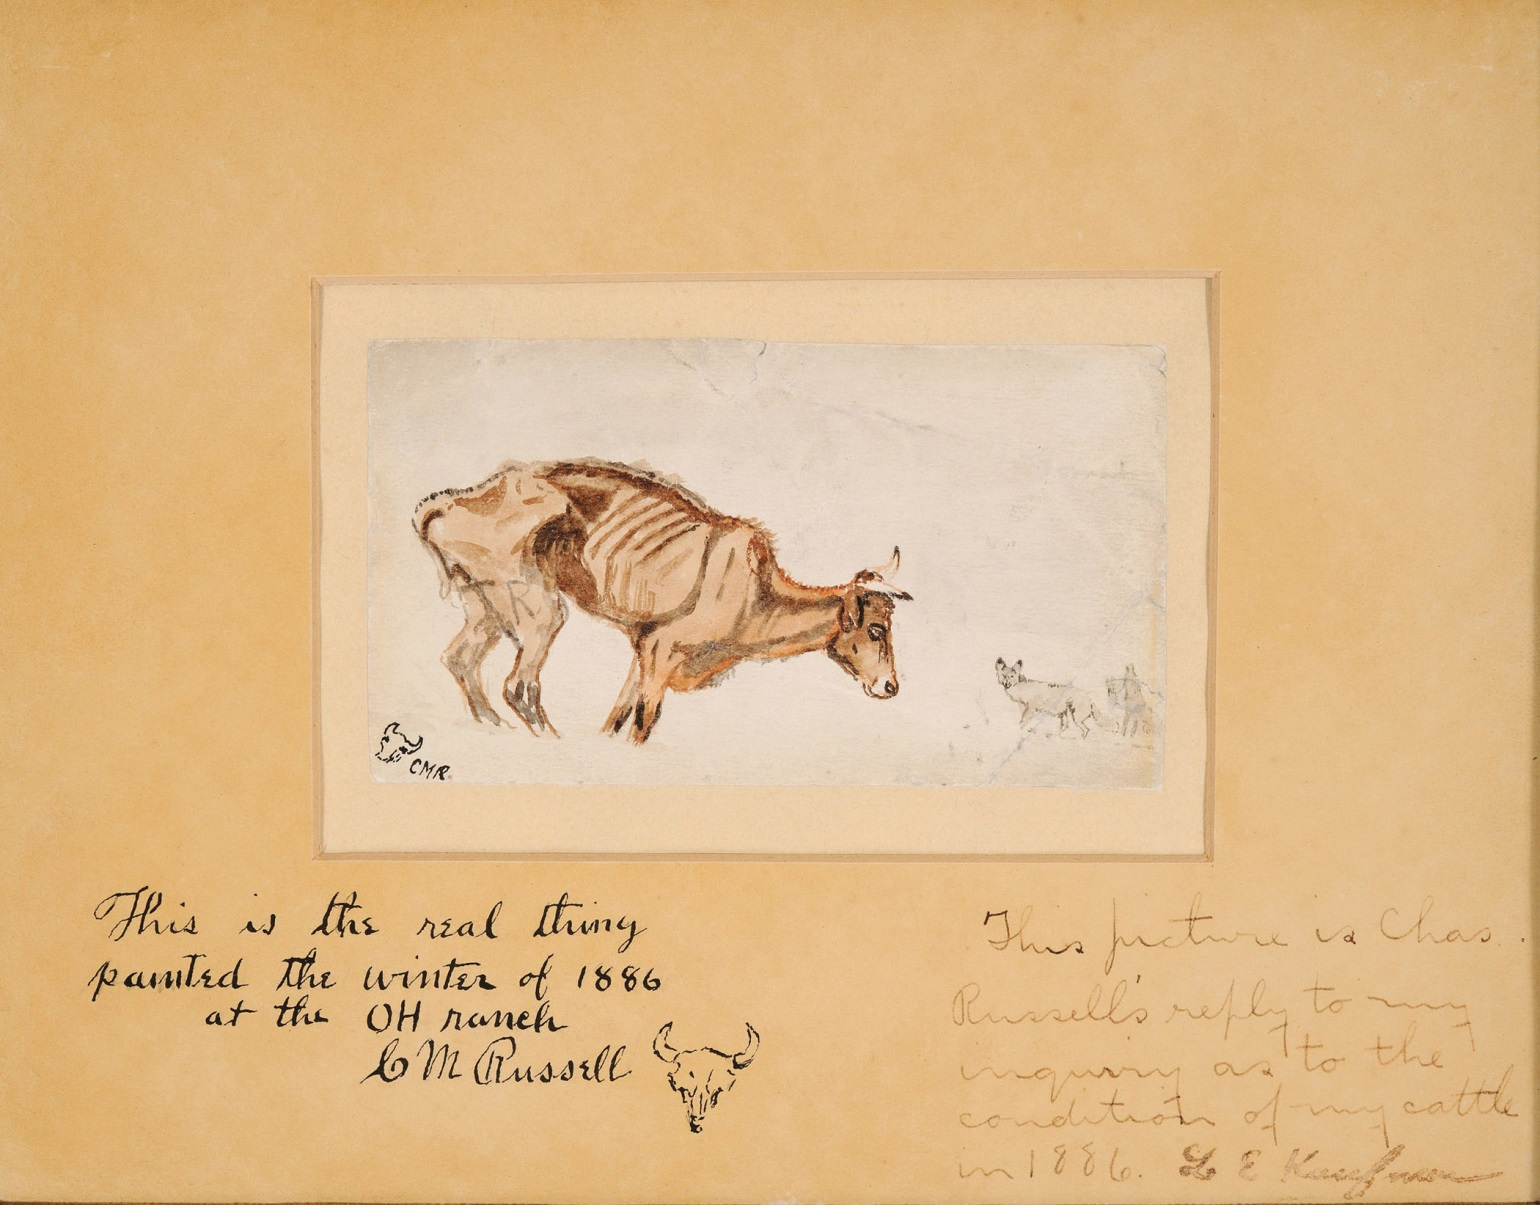 CMR
This is the real thing
painted the winter of 1886
at the OH ranch
C M Russell
This picture is Chas.
Russell's reply to my
inquiry as to the
condition of my cattle
in 1886. L E Kaufman